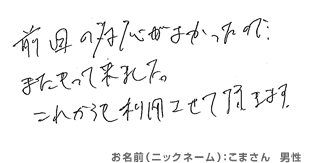 前回の対応がよかったので、
またもって来ました。
これからも利用させて頂きます
お名前（ニックネーム）：こまさん　男性